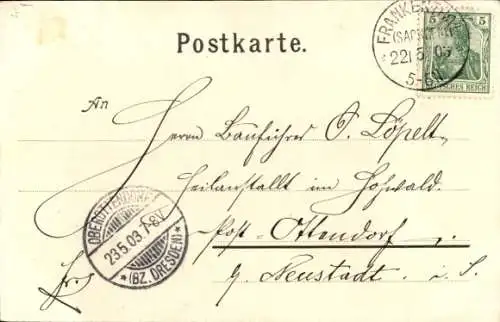 Postkarte.
FRANKENBERG
(SACHSEN)
22 5 03
5-6
5 5
DEUTSCHES REICH
An
Herrn Bauführer O. Löpelt
Heilanstallt im Hohwald.
Post-Ottendorf
b. Neustadt i. S.
OBEROTTENDORF
23.5.03. 7-8V.
*(BZ. DRESDEN)*
Fr.